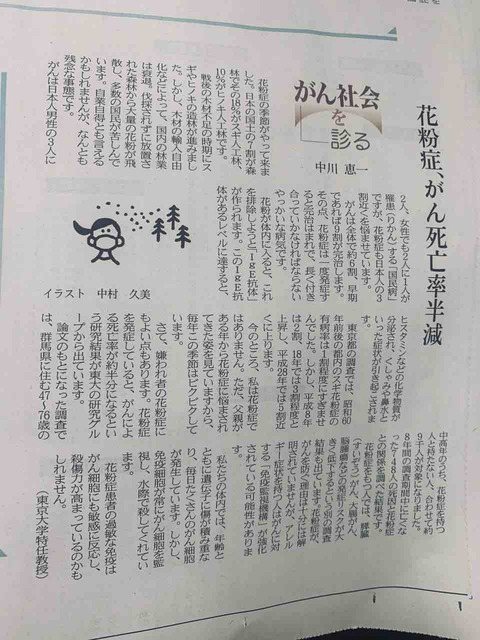 花粉症、がん死亡率半減
がん社会
を
診る
中川 恵一
花粉症の季節がやって来ま
した。日本の国土の7割が森
林でその18%がスギ人工林、
10%がヒノキ人工林です。
戦後の木材不足の時期にス
ギやヒノキの造林が進みまし
た。しかし、木材の輸入自由
化などによって、国内の林業
は衰退。伐採されずに放置さ
れた森林から大量の花粉が飛
散し、多数の国民が苦しんで
います。自業自得とも言える
かもしれませんが、なんとも
残念な事態です。
がんは日本人男性の3人に
2人、女性でも2人に1人が
罹患(りかん)する「国民病」
ですが、花粉症も日本人の3
割近くを悩ませています。
がんは全体で約6割、早期
であれば9割が完治します。
その点、花粉症は一度発症す
ると完治はまれで、長く付き
合っていかなければならない
やっかいな病気です。
花粉が体内に入ると、これ
を排除しようと「IgE抗体」
が作られます。このIgE抗
体があるレベルに達すると、
イラスト 中村 久美
ヒスタミンなどの化学物質が
分泌され、くしゃみや鼻水と
いった症状が引き起こされま
す。
東京都の調査では、昭和60
年前後の都内のスギ花粉症の
有病率は1割程度にすぎませ
んでした。しかし、平成8年
は2割、18年では3割程度と
上昇し、平成28年では5割近
くに上ります。
今のところ、私は花粉症で
はありません。ただ、父親が
ある年から花粉症に悩まされ
てきた姿を見ていますから、
毎年この季節はビクビクして
います。
さて、嫌われ者の花粉症に
もよい点もあります。花粉症
を発症していると、がんによ
る死亡率が約半分になるとい
う研究結果が東大の研究グル
ープから出ています。
論文のもとになった調査で
は、群馬県に住む47〜76歳の
中高年のうち、花粉症を持つ
人と持たない人、合わせて約
9千人が対象になりました。
8年間の調査期間中に亡くな
った748人の死因と花粉症
との関係を調べた結果です。
花粉症をもつ人では、膵臓
(すいぞう)がん、大腸がん、
脳腫瘍などの発症リスクが大
きく低下するという別の調査
結果も出ています。花粉症が、
がんを防ぐ理由は十分には解
明されていませんが、アレル
ギー症状を持つ人はがんに対
する「免疫監視機構」が強化
されている可能性がありま
す。
私たちの体内では、年齢と
ともに遺伝子に傷が積み重な
り、毎日たくさんのがん細胞
が発生しています。しかし、
免疫細胞が常にがん細胞を監
視し、水際で殺してくれてい
ます。
花粉症患者の過敏な免疫は
がん細胞にも敏感に反応し、
殺傷力が高まっているのかも
しれません。
(東京大学特任教授)